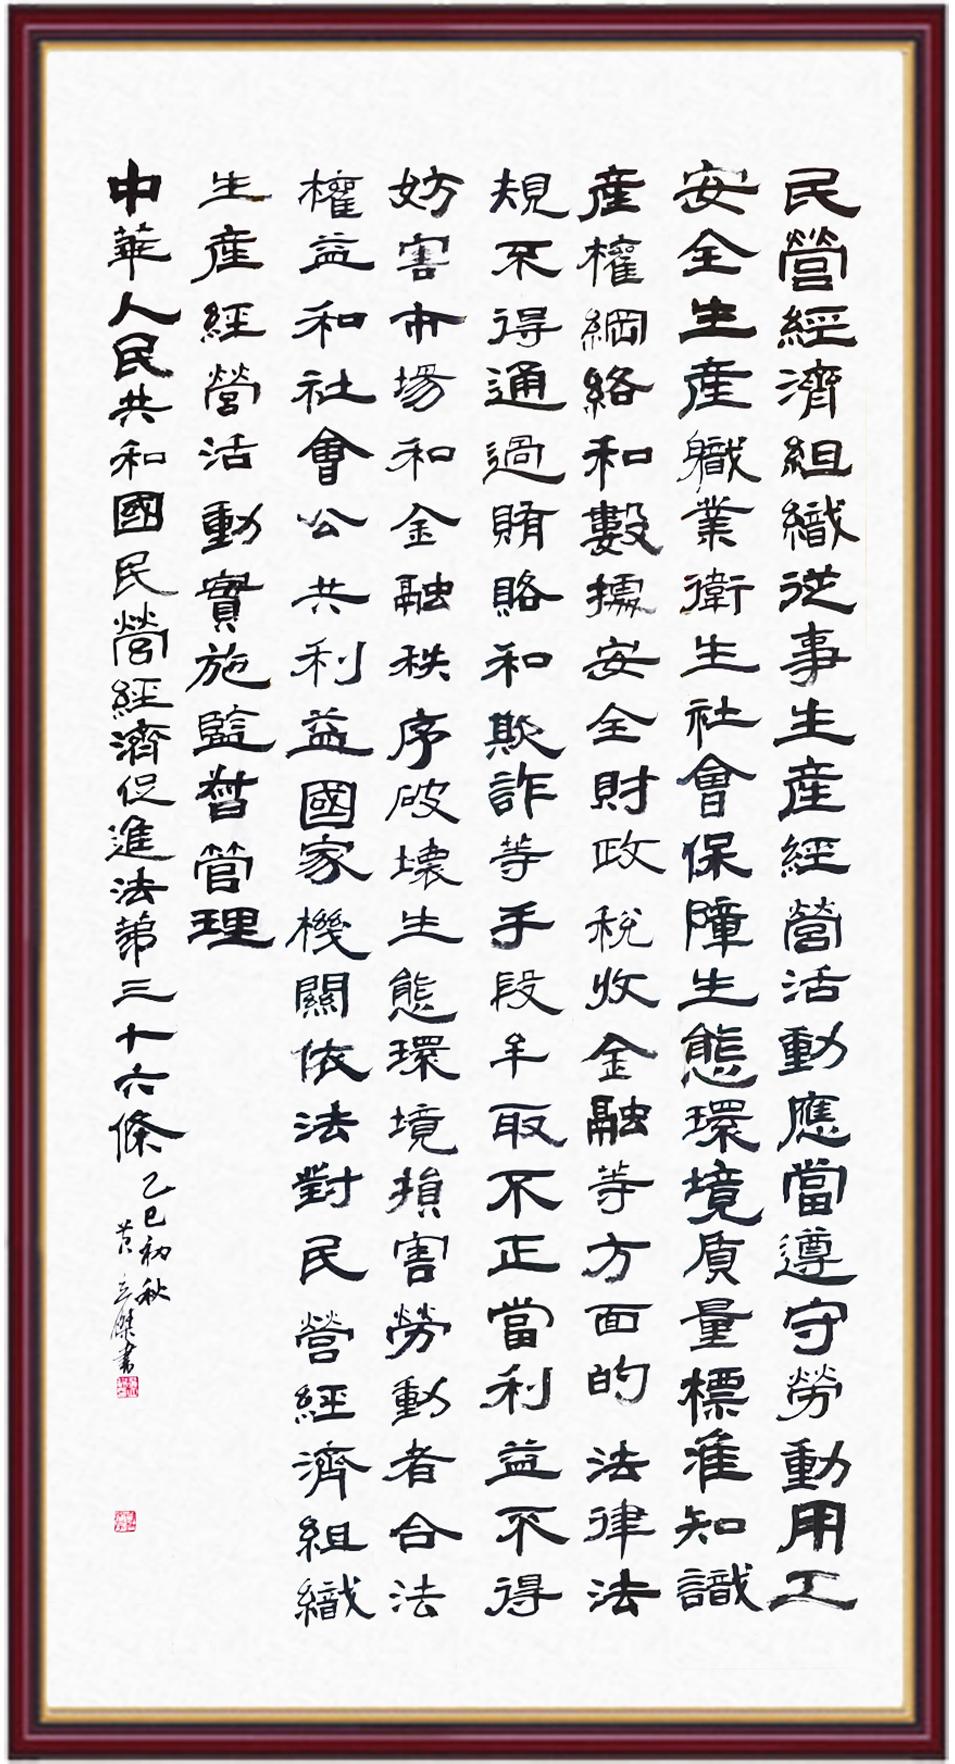 民營經濟組織從事生產經營活動應當遵守勞動用工
安全生產職業衛生社會保障生態環境質量標準知識
產權網絡和數據安全財政稅收金融等方面的法律法
規不得通過賄賂和欺詐等手段牟取不正當利益不得
妨害市場和金融秩序破壞生態環境損害勞動者合法
權益和社會公共利益國家機關依法對民營經濟組織
生產經營活動實施監督管理
中華人民共和國民營經濟促進法第三十六條
乙巳初秋
黃立傑書